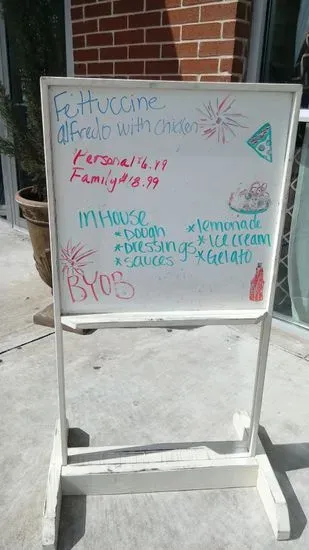 Fettuccine
alfredo with chicken
Personal $6.99
Family $18.99
INHOUSE
*Dough
*Dressings
*sauces
*lemonade
*Ice cream
*Gelato
BYOB